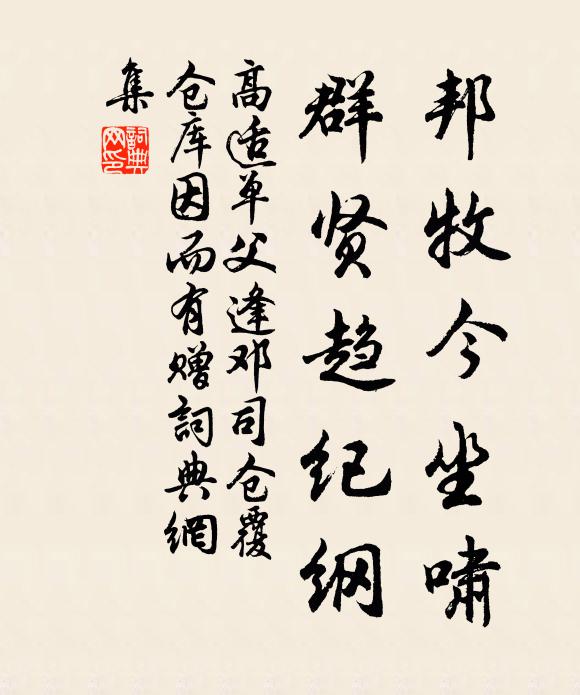 邦牧今坐啸
群贤趋纪纲
高适单父逢邓司仓覆
仓库因而有赠詞典網
集
詞典網印